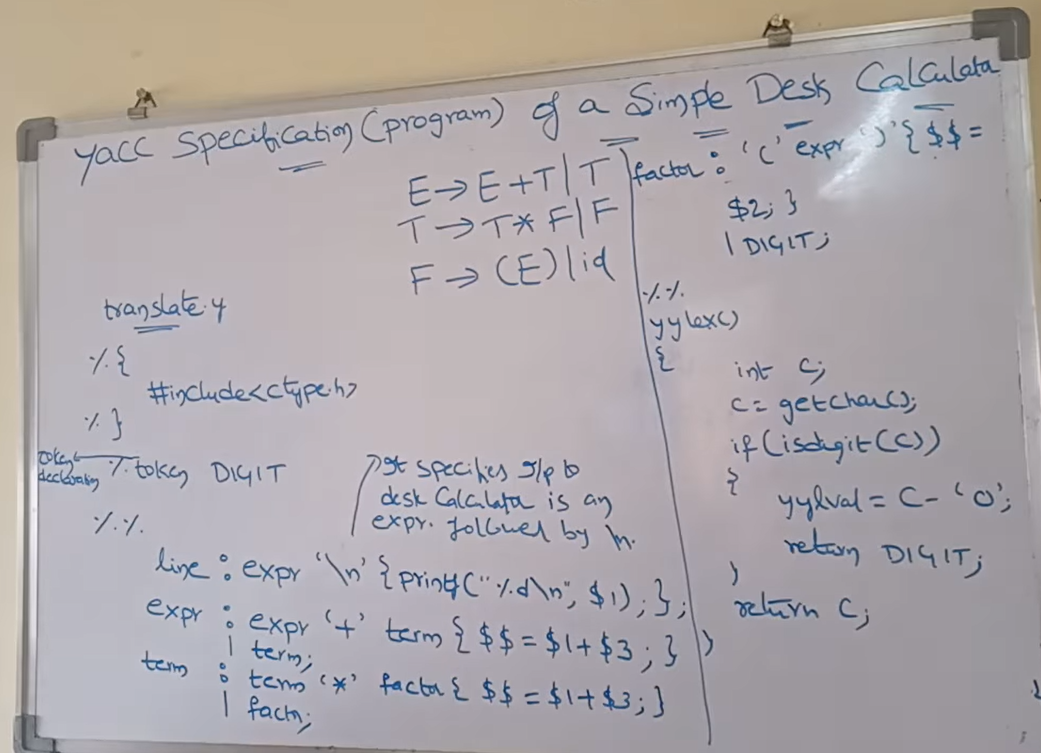 yacc Specification (program) of a Simple Desk Calculata
E → E + T | T
T → T * F | F
F → (E) | id
translate.y
%{
#include<ctype.h>
%}
token declaration
%token DIGIT
%%
It specifies I/p to
desk Calculata is an
expr. followed by \n.
line : expr '\n' {printf("%d\n", $1); };
expr : expr '+' term { $$ = $1+$3; }
| term;
term : term '*' factor { $$ = $1+$3; }
| factr;
factor : '(' expr ')' { $$ =
$2; }
| DIGIT;
%%
yylex()
{
int c;
c= getchar();
if (isdigit(c))
{
yylval = c - '0';
return DIGIT;
}
return c;
}